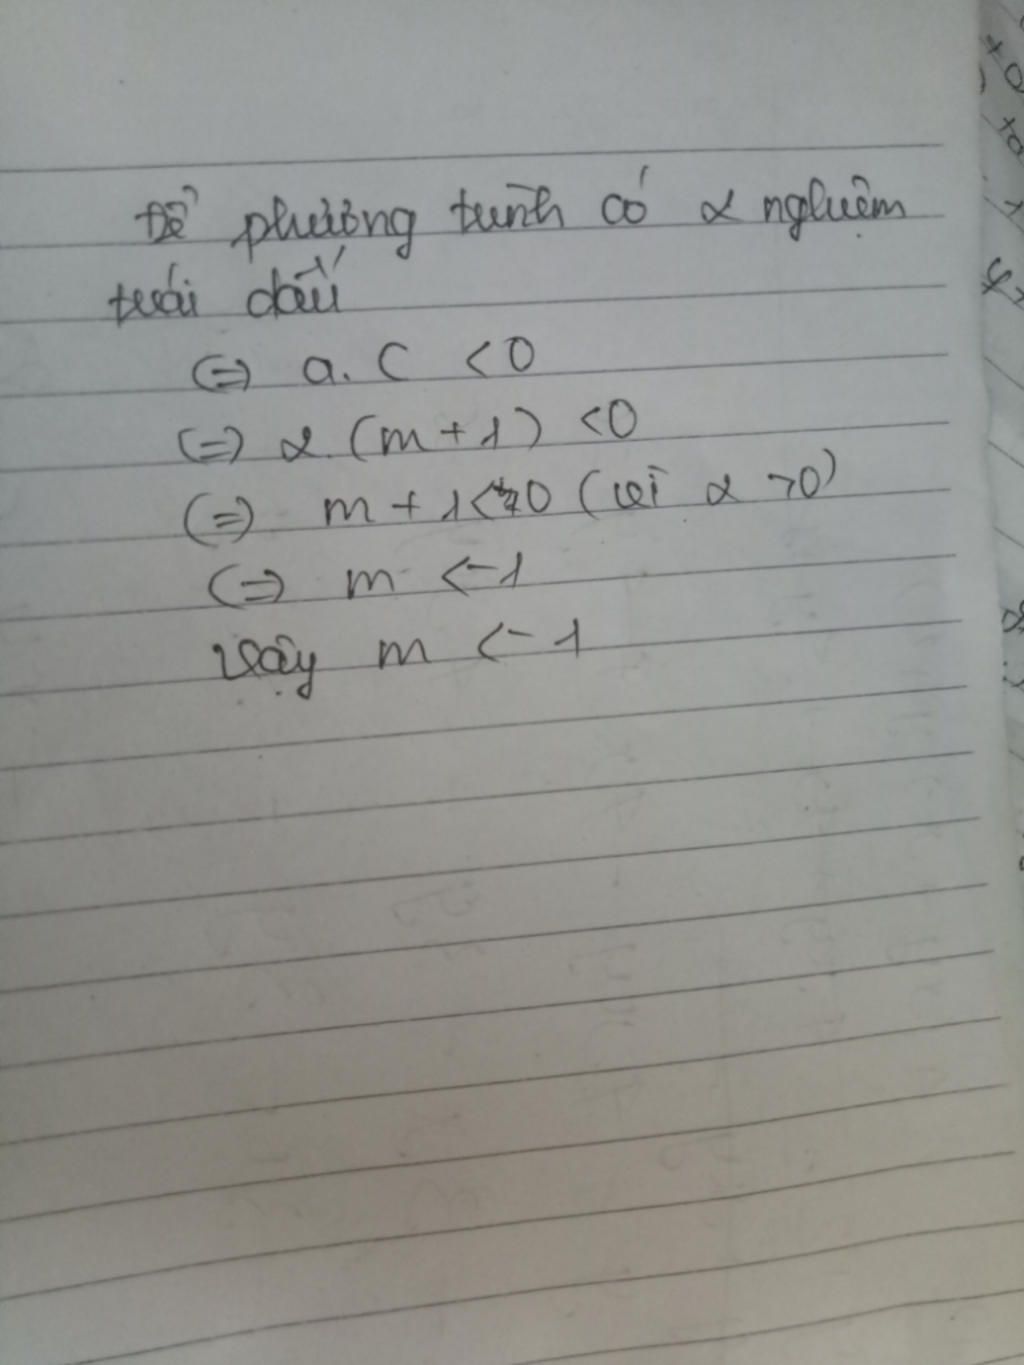 Để phương trình có 2 nghiệm
trái dấu
<=> a.c <0
<=> 2.(m+1) <0
<=> m+1<0 (vì 2 >0)
<=> m <-1
Vậy m <-1